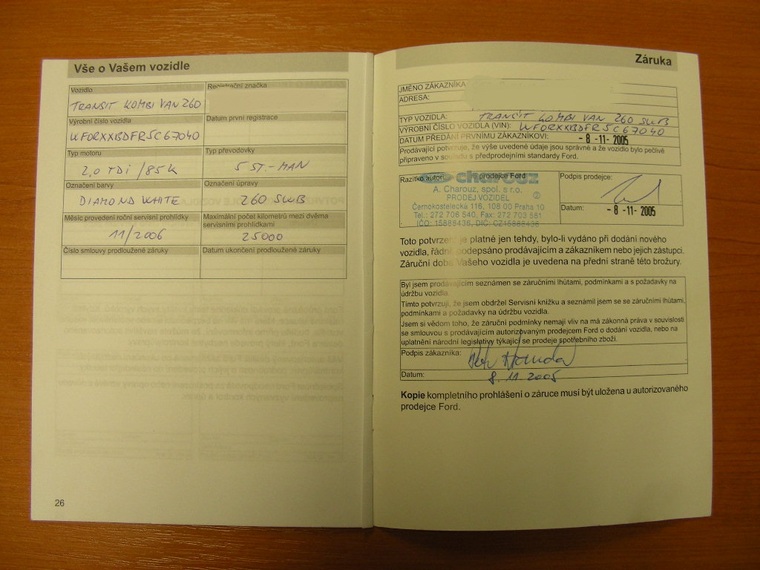 Vše o Vašem vozidle
Vozidlo
TRANSIT KOMBI VAN 260
Registrační značka
Výrobní číslo vozidla
WF0RXXBDFR5C67040
Datum první registrace
Typ motoru
2,0 TDI /85K
Typ převodovky
5 ST-MAN
Označení barvy
DIAMOND WHITE
Označení úpravy
260 SWB
Měsíc provedení roční servisní prohlídky
11/2006
Maximální počet kilometrů mezi dvěma
servisními prohlídkami
25000
Číslo smlouvy prodloužené záruky
Datum ukončení prodloužené záruky
26
Záruka
JMÉNO ZÁKAZNÍKA
ADRESA:
TYP VOZIDLA: TRANSIT KOMBI VAN 260 SWB
VÝROBNÍ ČÍSLO VOZIDLA (VIN): WF0RXXBDFR5C67040
DATUM PŘEDÁNÍ PRVNÍMU ZÁKAZNÍKOVI: - 8 -11- 2005
Prodávající potvrzuje, že výše uvedené údaje jsou správné a že vozidlo bylo pečlivě
připraveno v souladu s předprodejními standardy Ford.
Razítko prodejce Ford
charouz
A. Charouz, spol. s r.o.
PRODEJ VOZIDEL
Černokostelecká 116, 108 00 Praha 10
Tel.: 272 706 540, Fax: 272 703 581
Podpis prodejce:
Datum: - 8 -11- 2005
Toto potvrzení je platné jen tehdy, bylo-li vydáno při dodání nového
vozidla, řádně podepsáno prodávajícím a zákazníkem nebo jejich zástupci.
Záruční doba Vašeho vozidla je uvedena na přední straně této brožury.
Byl jsem prodávajícím seznámen se záručními lhůtami, podmínkami a s požadavky na
údržbu vozidla.
Tímto potvrzuji, že jsem obdržel Servisní knížku a seznámil jsem se se záručními lhůtami,
podmínkami a požadavky na údržbu vozidla.
Jsem si vědom toho, že záruční podmínky nemají vliv na má zákonná práva v souvislosti
se smlouvou s prodávajícím autorizovaným prodejcem Ford o dodání vozidla, nebo na
uplatnění národní legislativy týkající se prodeje spotřebního zboží.
Podpis zákazníka:
Datum: 8.11.2005
Kopie kompletního prohlášení o záruce musí být uložena u autorizovaného
prodejce Ford.